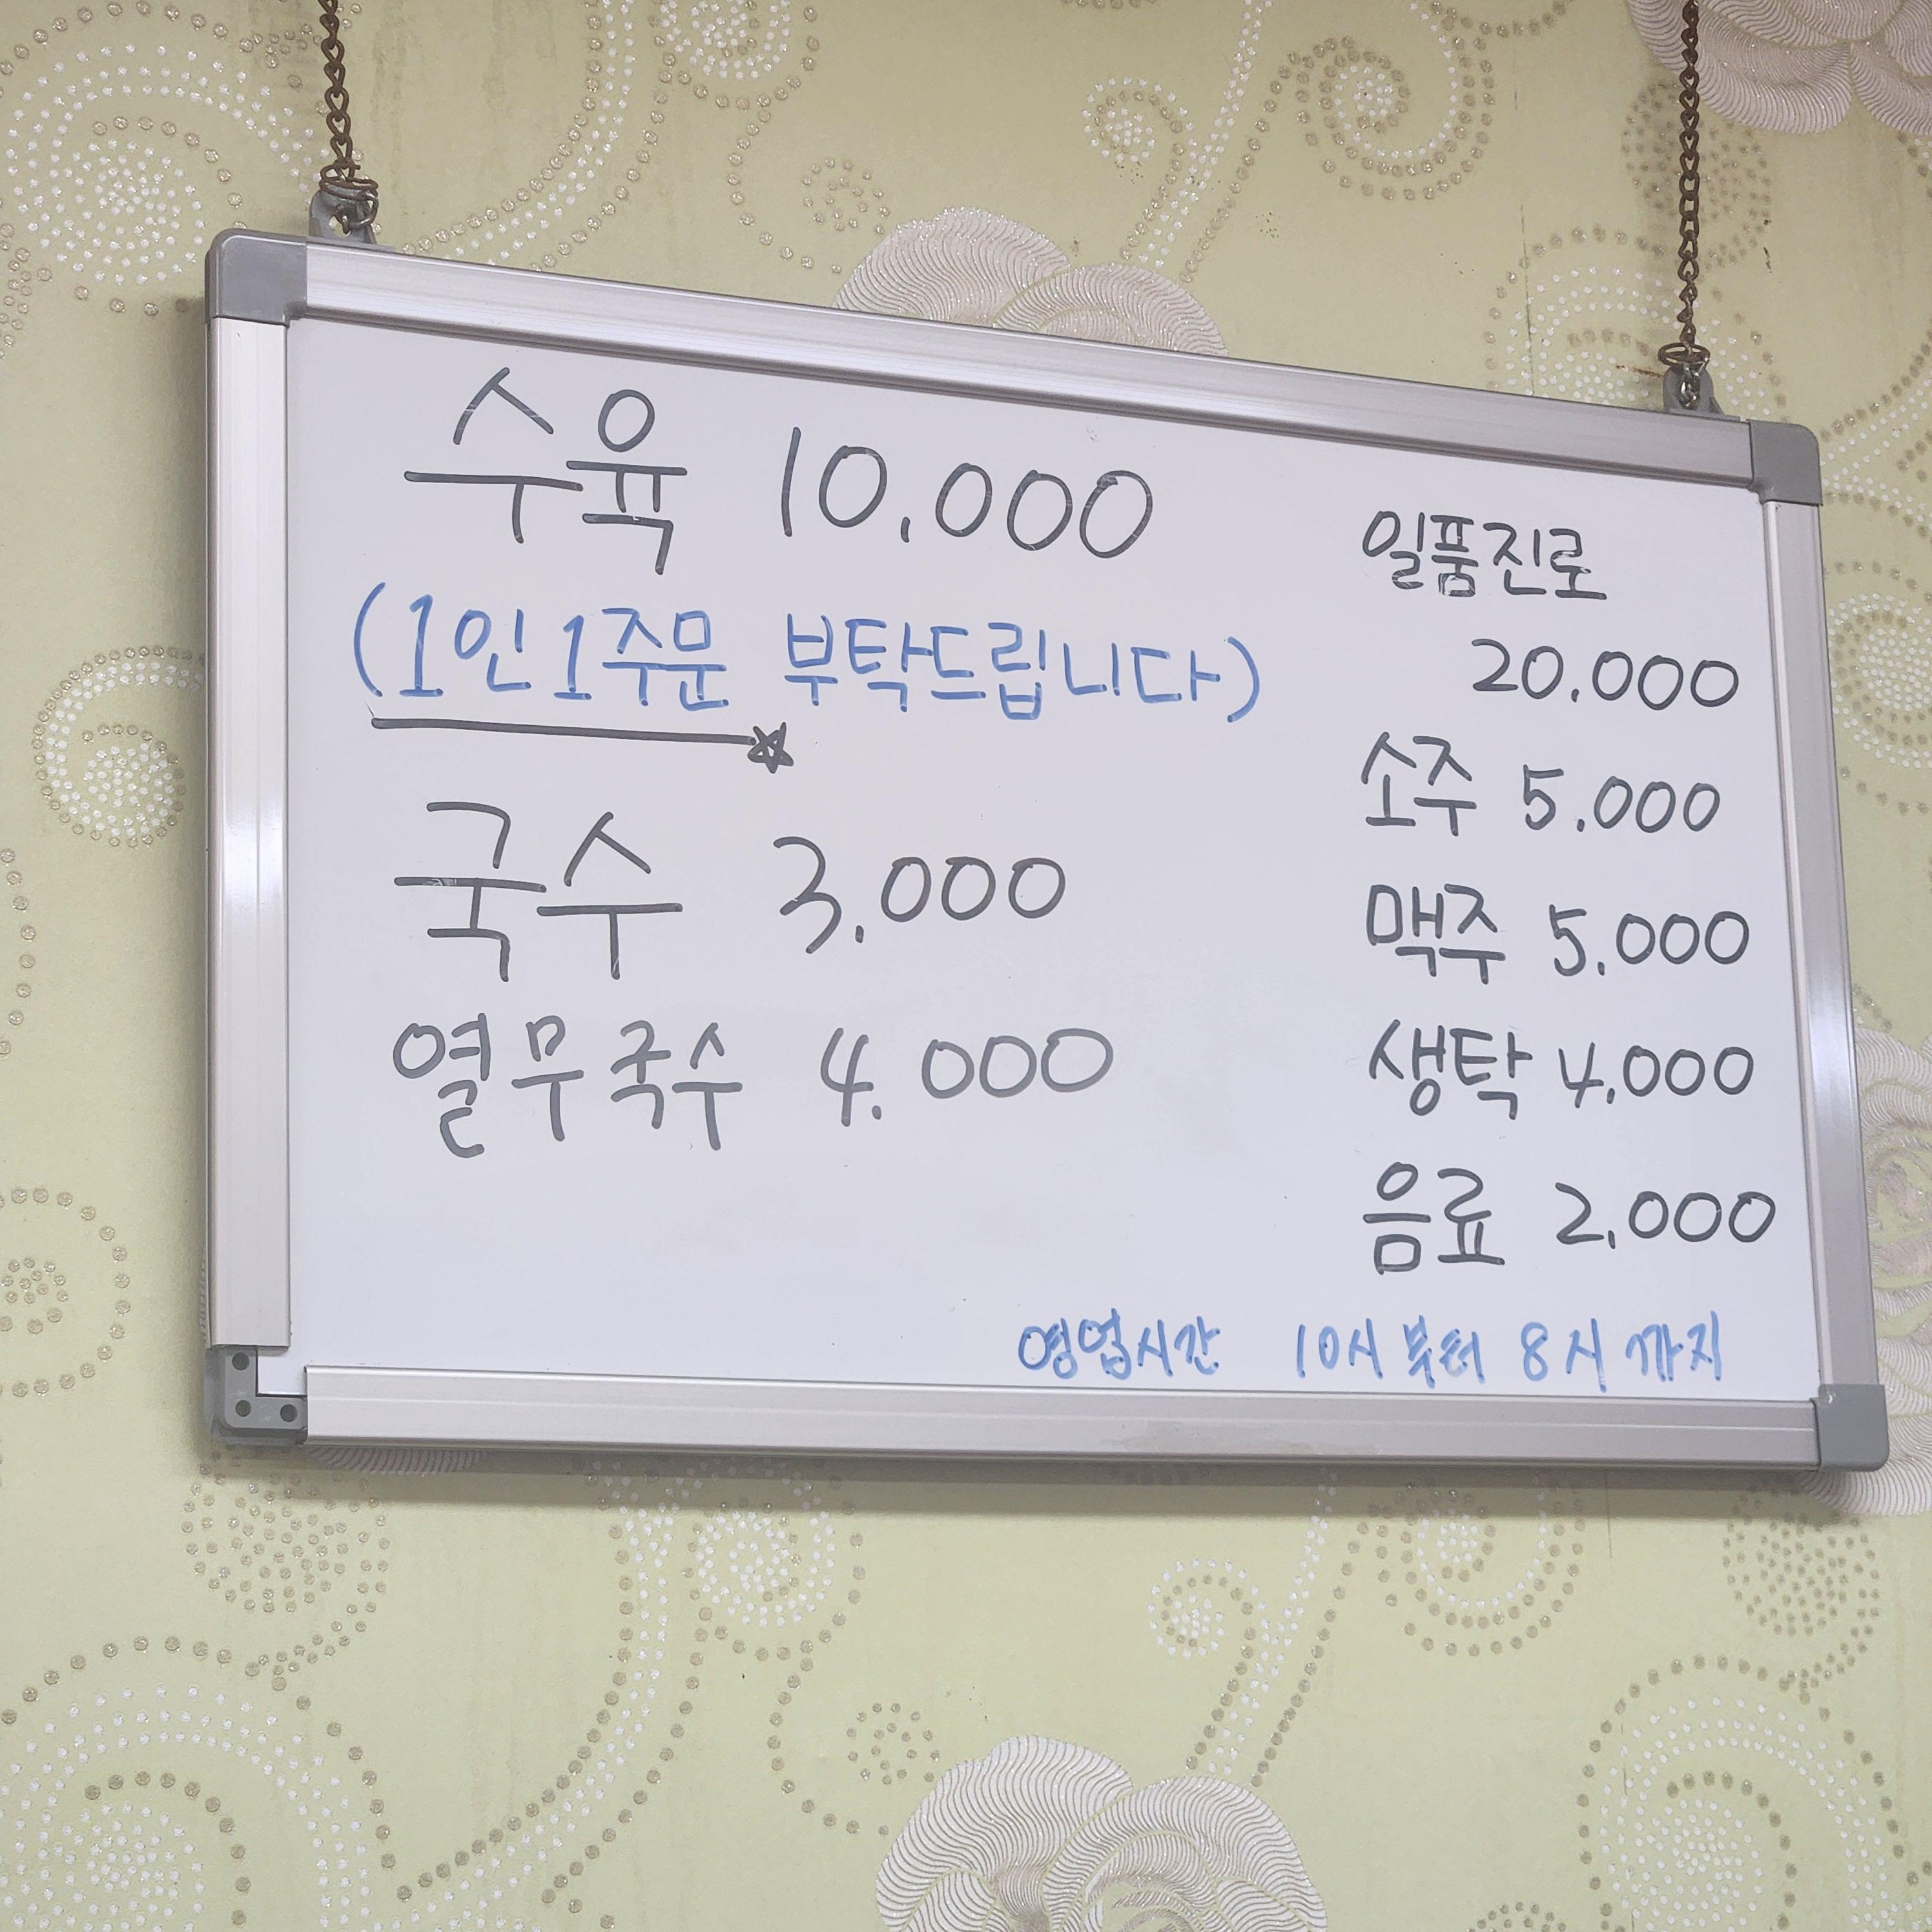 수육 10,000
(1인 1주문 부탁드립니다)
국수 3,000
열무국수 4.000
일품진로
20.000
소주 5.000
맥주 5.000
생탁 4,000
음료 2,000
영업시간 10시부터 8시까지